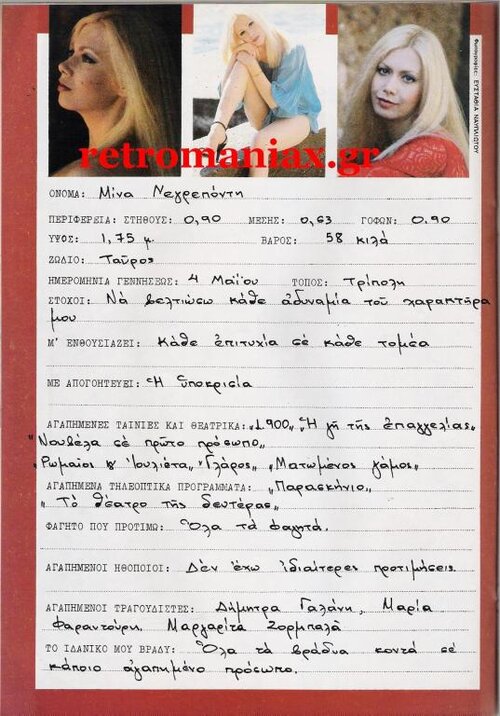 Φωτογραφίες: ΕΥΣΤΑΘΙΑ ΝΑΥΠΛΙΩΤΟΥ
retromaniax.gr
ΟΝΟΜΑ: Μίνα Νεγρεπόντη
ΠΕΡΙΦΕΡΕΙΑ: ΣΤΗΘΟΥΣ: 0,90 ΜΕΣΗΣ: 0,63 ΓΟΦΩΝ: 0.90
ΥΨΟΣ: 1,75 μ. ΒΑΡΟΣ: 58 κιλά
ΖΩΔΙΟ: Ταῦρος
ΗΜΕΡΟΜΗΝΙΑ ΓΕΝΝΗΣΕΩΣ: 4 Μαΐου ΤΟΠΟΣ: Τρίπολη
ΣΤΟΧΟΙ: Νὰ βελτιώσω κάθε ἀδυναμία τοῦ χαρακτήρα
μου
Μ' ΕΝΘΟΥΣΙΑΖΕΙ: Κάθε ἐπιτυχία σὲ κάθε τομέα
ΜΕ ΑΠΟΓΟΗΤΕΥΕΙ: Ἡ ὑποκρισία
ΑΓΑΠΗΜΕΝΕΣ ΤΑΙΝΙΕΣ ΚΑΙ ΘΕΑΤΡΙΚΑ: „1.900" „Ἡ γῆ τῆς ἐπαγγελίας"
„Νουβέλα σὲ πρῶτο πρόσωπο„
„Ρωμαῖος & Ἰουλιέτα„ „Γλάρος„ „Ματωμένος γάμος„
ΑΓΑΠΗΜΕΝΑ ΤΗΛΕΟΠΤΙΚΑ ΠΡΟΓΡΑΜΜΑΤΑ: „Παρασκήνιο„
„Τὸ θέατρο τῆς δευτέρας„
ΦΑΓΗΤΟ ΠΟΥ ΠΡΟΤΙΜΩ: Ὅλα τὰ φαγητά.
ΑΓΑΠΗΜΕΝΟΙ ΗΘΟΠΟΙΟΙ: Δὲν ἔχω ἰδιαίτερες προτιμήσεις.
ΑΓΑΠΗΜΕΝΟΙ ΤΡΑΓΟΥΔΙΣΤΕΣ: Δήμητρα Γαλάνη, Μαρία
Φαραντούρη. Μαργαρίτα Ζορμπαλᾶ
ΤΟ ΙΔΑΝΙΚΟ ΜΟΥ ΒΡΑΔΥ: Ὅλα τὰ βράδυα κοντά σὲ
κάποιο ἀγαπημένο πρόσωπο.